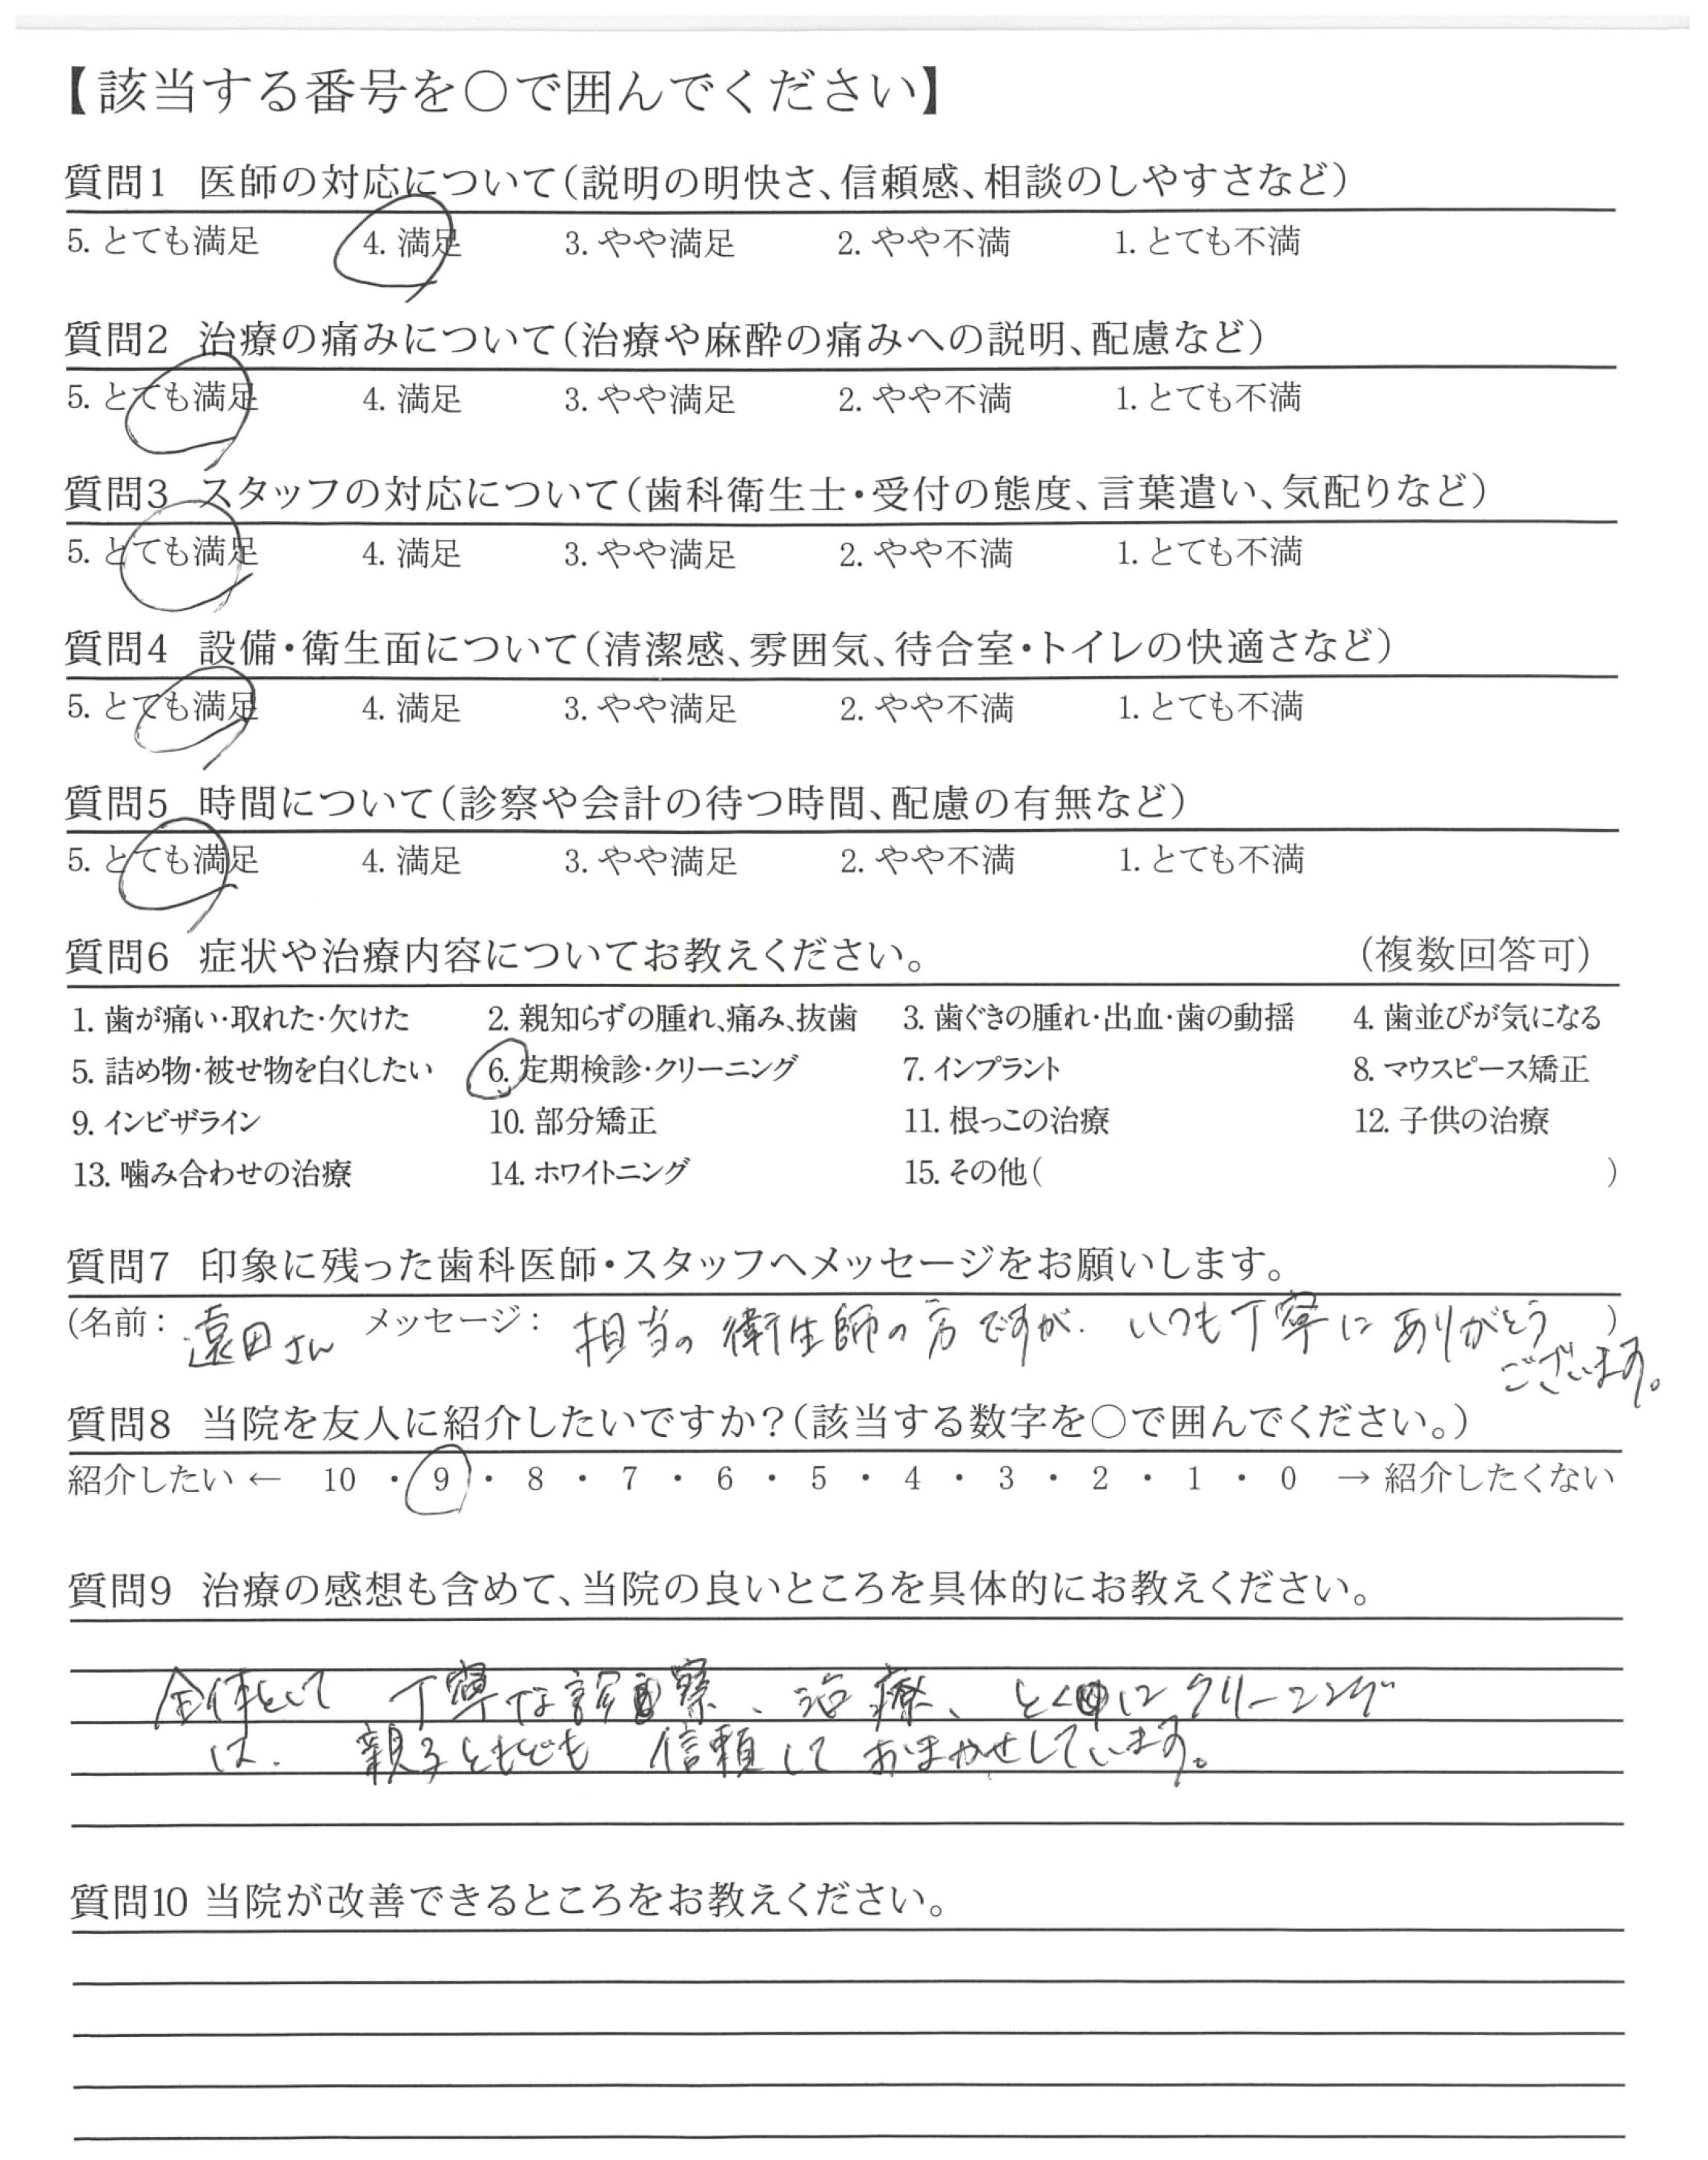 【該当する番号を○で囲んでください】
質問1 医師の対応について(説明の明快さ、信頼感、相談のしやすさなど)
5. とても満足 4. 満足 3. やや満足 2. やや不満 1. とても不満
質問2 治療の痛みについて(治療や麻酔の痛みへの説明、配慮など)
5. とても満足 4. 満足 3. やや満足 2. やや不満 1. とても不満
質問3 スタッフの対応について(歯科衛生士・受付の態度、言葉遣い、気配りなど)
5. とても満足 4. 満足 3. やや満足 2. やや不満 1. とても不満
質問4 設備・衛生面について(清潔感、雰囲気、待合室・トイレの快適さなど)
5. とても満足 4. 満足 3. やや満足 2. やや不満 1. とても不満
質問5 時間について(診察や会計の待つ時間、配慮の有無など)
5. とても満足 4. 満足 3. やや満足 2. やや不満 1. とても不満
質問6 症状や治療内容についてお教えください。 (複数回答可)
1. 歯が痛い・取れた・欠けた 2. 親知らずの腫れ、痛み、抜歯 3. 歯ぐきの腫れ・出血・歯の動揺 4. 歯並びが気になる
5. 詰め物・被せ物を白くしたい 6. 定期検診・クリーニング 7. インプラント 8. マウスピース矯正
9. インビザライン 10. 部分矯正 11. 根っこの治療 12. 子供の治療
13. 噛み合わせの治療 14. ホワイトニング 15. その他( )
質問7 印象に残った歯科医師・スタッフへメッセージをお願いします。
(名前: 遠田さん メッセージ: 担当の衛生師の方ですが、いつも丁寧にありがとう )
ございます。
質問8 当院を友人に紹介したいですか?(該当する数字を○で囲んでください。)
紹介したい ← 10 ・ 9 ・ 8 ・ 7 ・ 6 ・ 5 ・ 4 ・ 3 ・ 2 ・ 1 ・ 0 → 紹介したくない
質問9 治療の感想も含めて、当院の良いところを具体的にお教えください。
全体として 丁寧な診察、治療、とくにクリーニング
は、親子ともども 信頼して おまかせしています。
質問10 当院が改善できるところをお教えください。